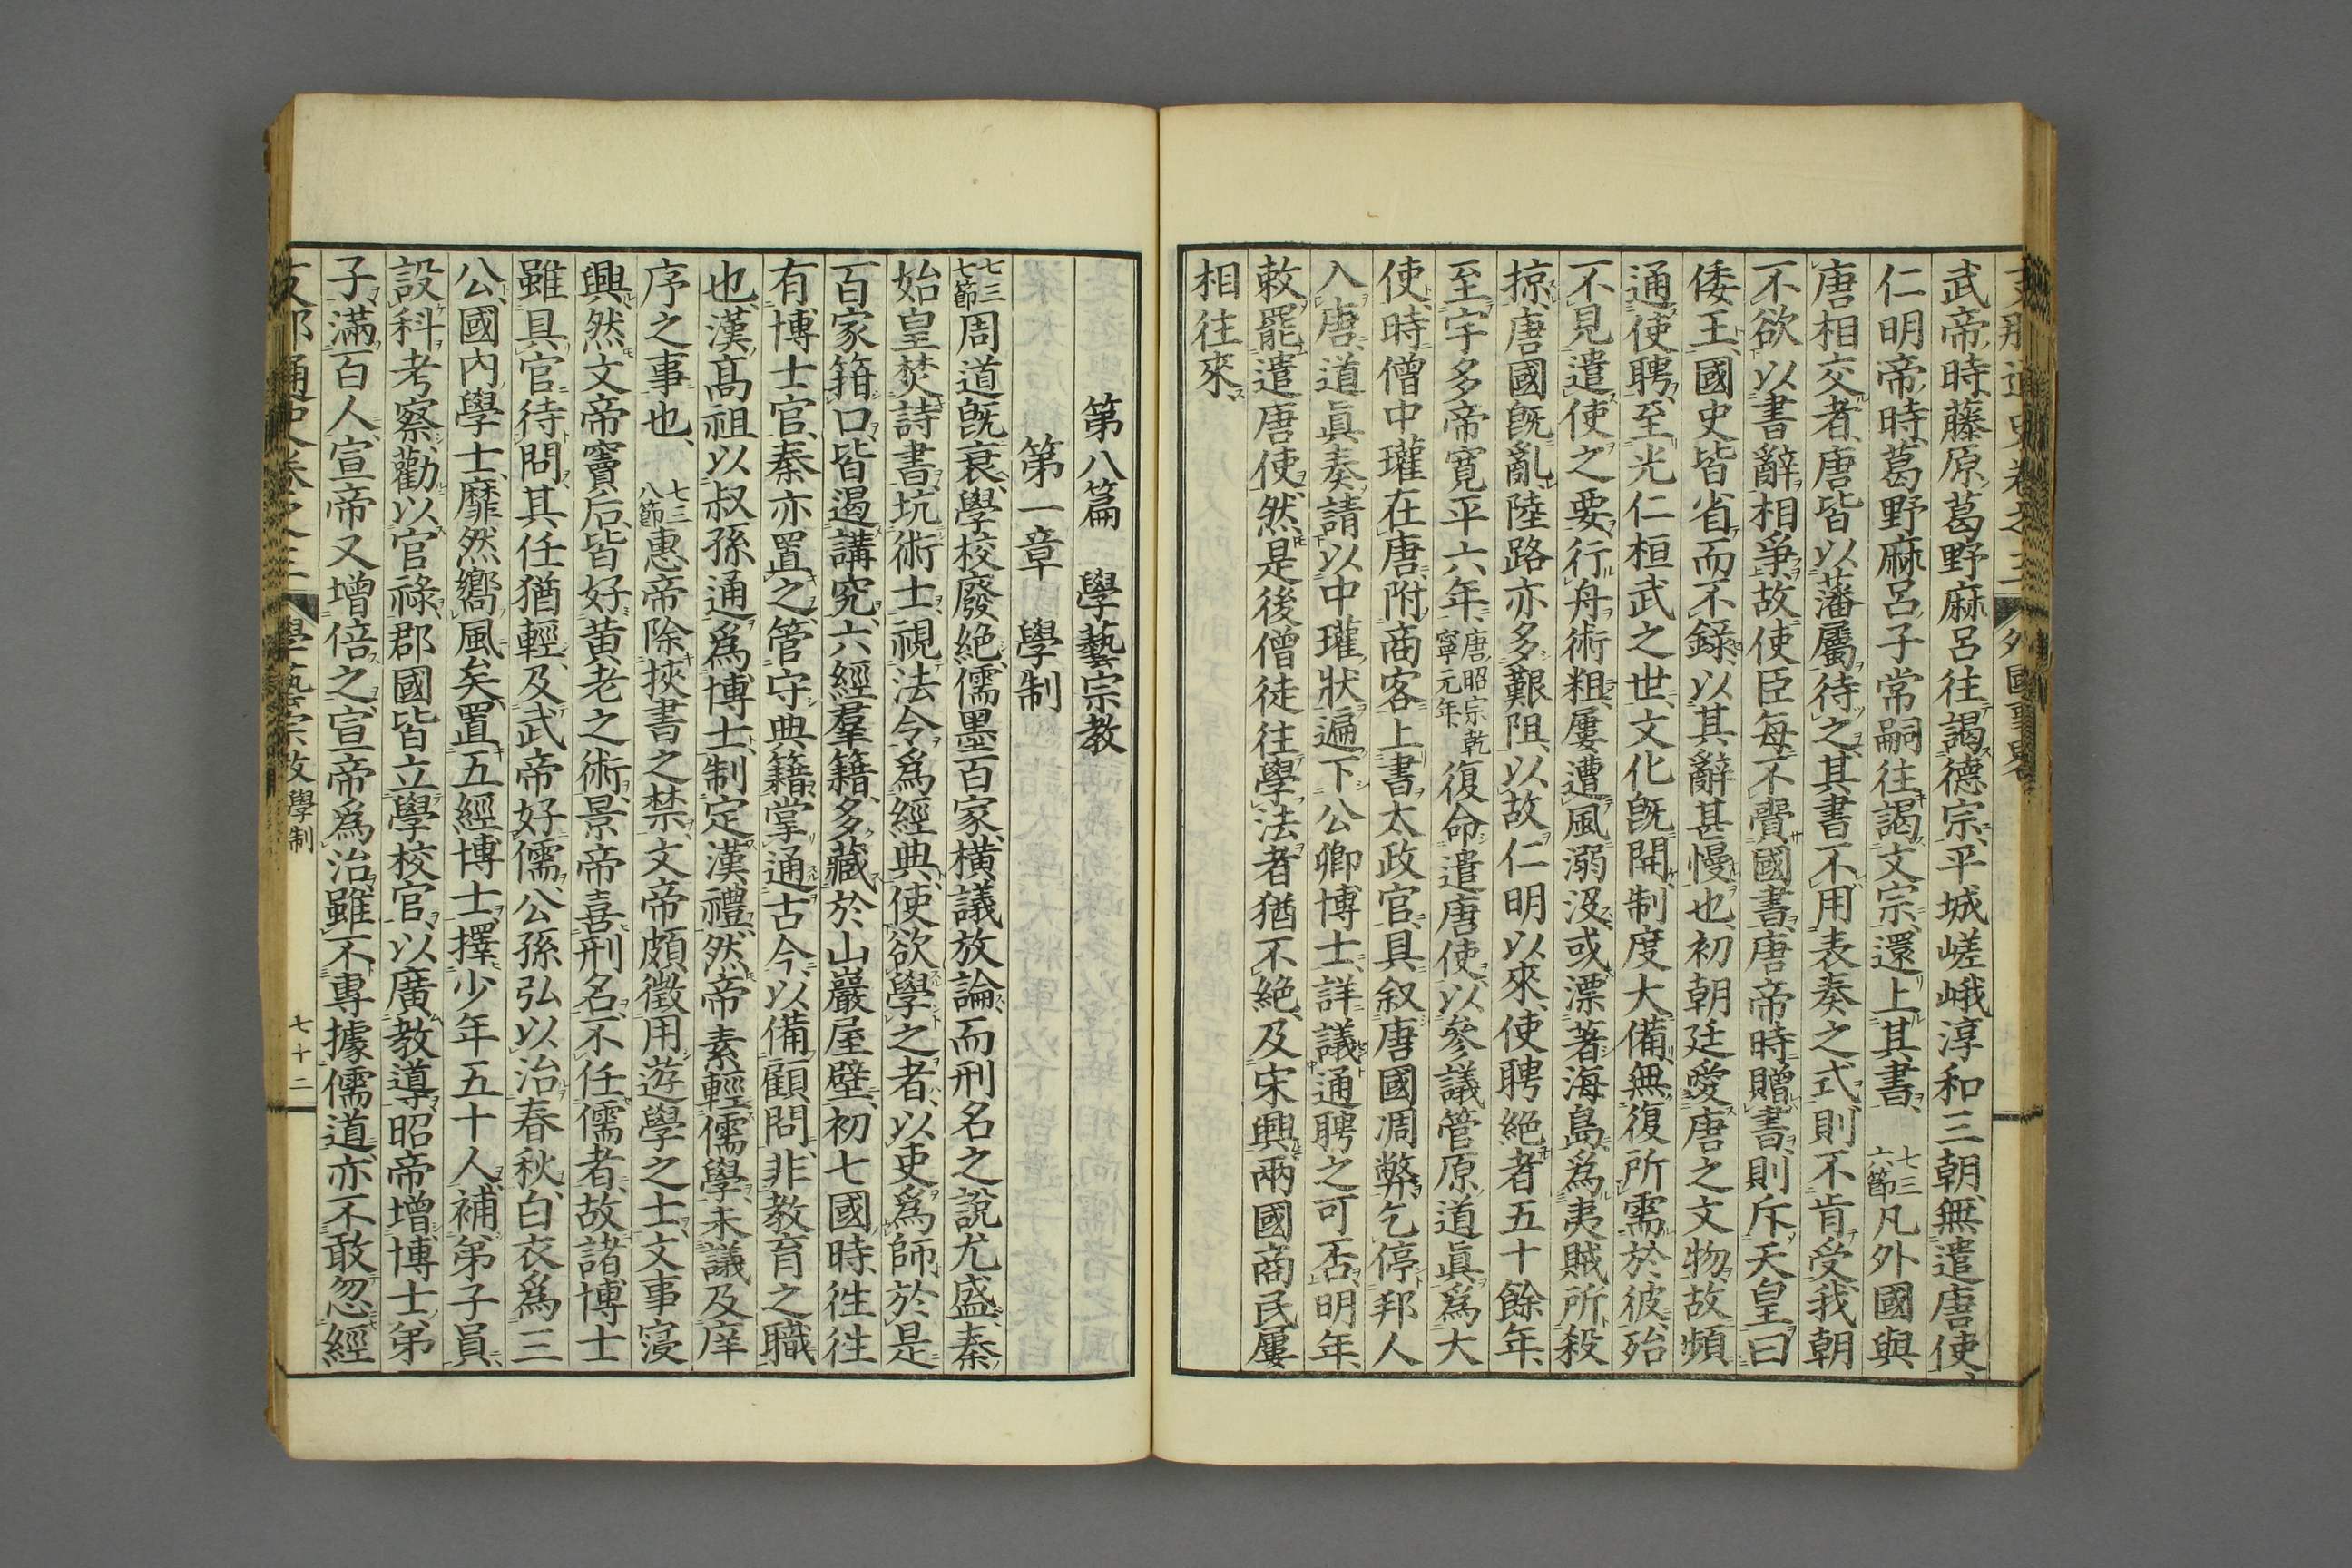 武帝時、藤原葛野麻呂往謁德宗、平城嵯峨淳和三朝、無遣唐使、
仁明帝時、葛野麻呂子常嗣往謁文宗、還上其書、七三六節凡外國與
唐相交者、唐皆以藩屬待之、其書不用表奏之式、則不肯受、我朝
不欲以書辭相爭、故使臣每不賷國書、唐帝時贈書、則斥天皇曰
倭王、國史皆省而不錄、以其辭甚慢也、初朝廷愛唐之文物、故頻
通使聘、至光仁桓武之世、文化既開、制度大備、無復所需於彼、殆
不見遣使之要、行舟術粗、屢遭風溺沒、或漂著海島、爲夷賊所殺
掠、唐國既亂、陸路亦多艱阻、以故仁明以來、使聘絕者五十餘年、
至宇多帝寛平六年、唐昭宗乾寧元年、復命遣唐使、以參議菅原道眞爲大
使、時僧中瓘在唐、附商客上書太政官、具叙唐國凋弊、乞停邦人
入唐、道眞奏請以中瓘狀遍下公卿博士、詳議通聘之可否、明年、
敕罷遣唐使、然是後僧徒往學法者猶不絕、及宋興、兩國商民屢
相往來、
第八篇　學藝宗教
第一章　學制
七三七節周道既衰、學校廢絕、儒墨百家、橫議放論、而刑名之說尤盛、秦
始皇焚詩書、坑術士、視法令爲經典、使欲學之者、以吏爲師、於是
百家箝口、皆遏講究、六經羣籍、多藏於山巖屋壁、初七國時、往往
有博士官、秦亦置之、管守典籍、掌通古今、以備顧問、非教育之職
也、漢高祖以叔孫通爲博士、制定漢禮、然帝素輕儒學、未議及庠
序之事也、七三八節惠帝除挾書之禁、文帝頗徵用遊學之士、文事寖
興、然文帝竇后、皆好黄老之術、景帝喜刑名、不任儒者、故諸博士
雖具官待問、其任猶輕、及武帝好儒、公孫弘以治春秋、白衣爲三
公、國內學士、靡然嚮風矣、置五經博士、擇少年五十人、補弟子員、
設科考察、勸以官祿、郡國皆立學校官、以廣教導、昭帝增博士弟
子、滿百人、宣帝又增倍之、宣帝爲治、雖不專據儒道、亦不敢忽經
支那通史卷之三　學藝宗教　學制　七十二